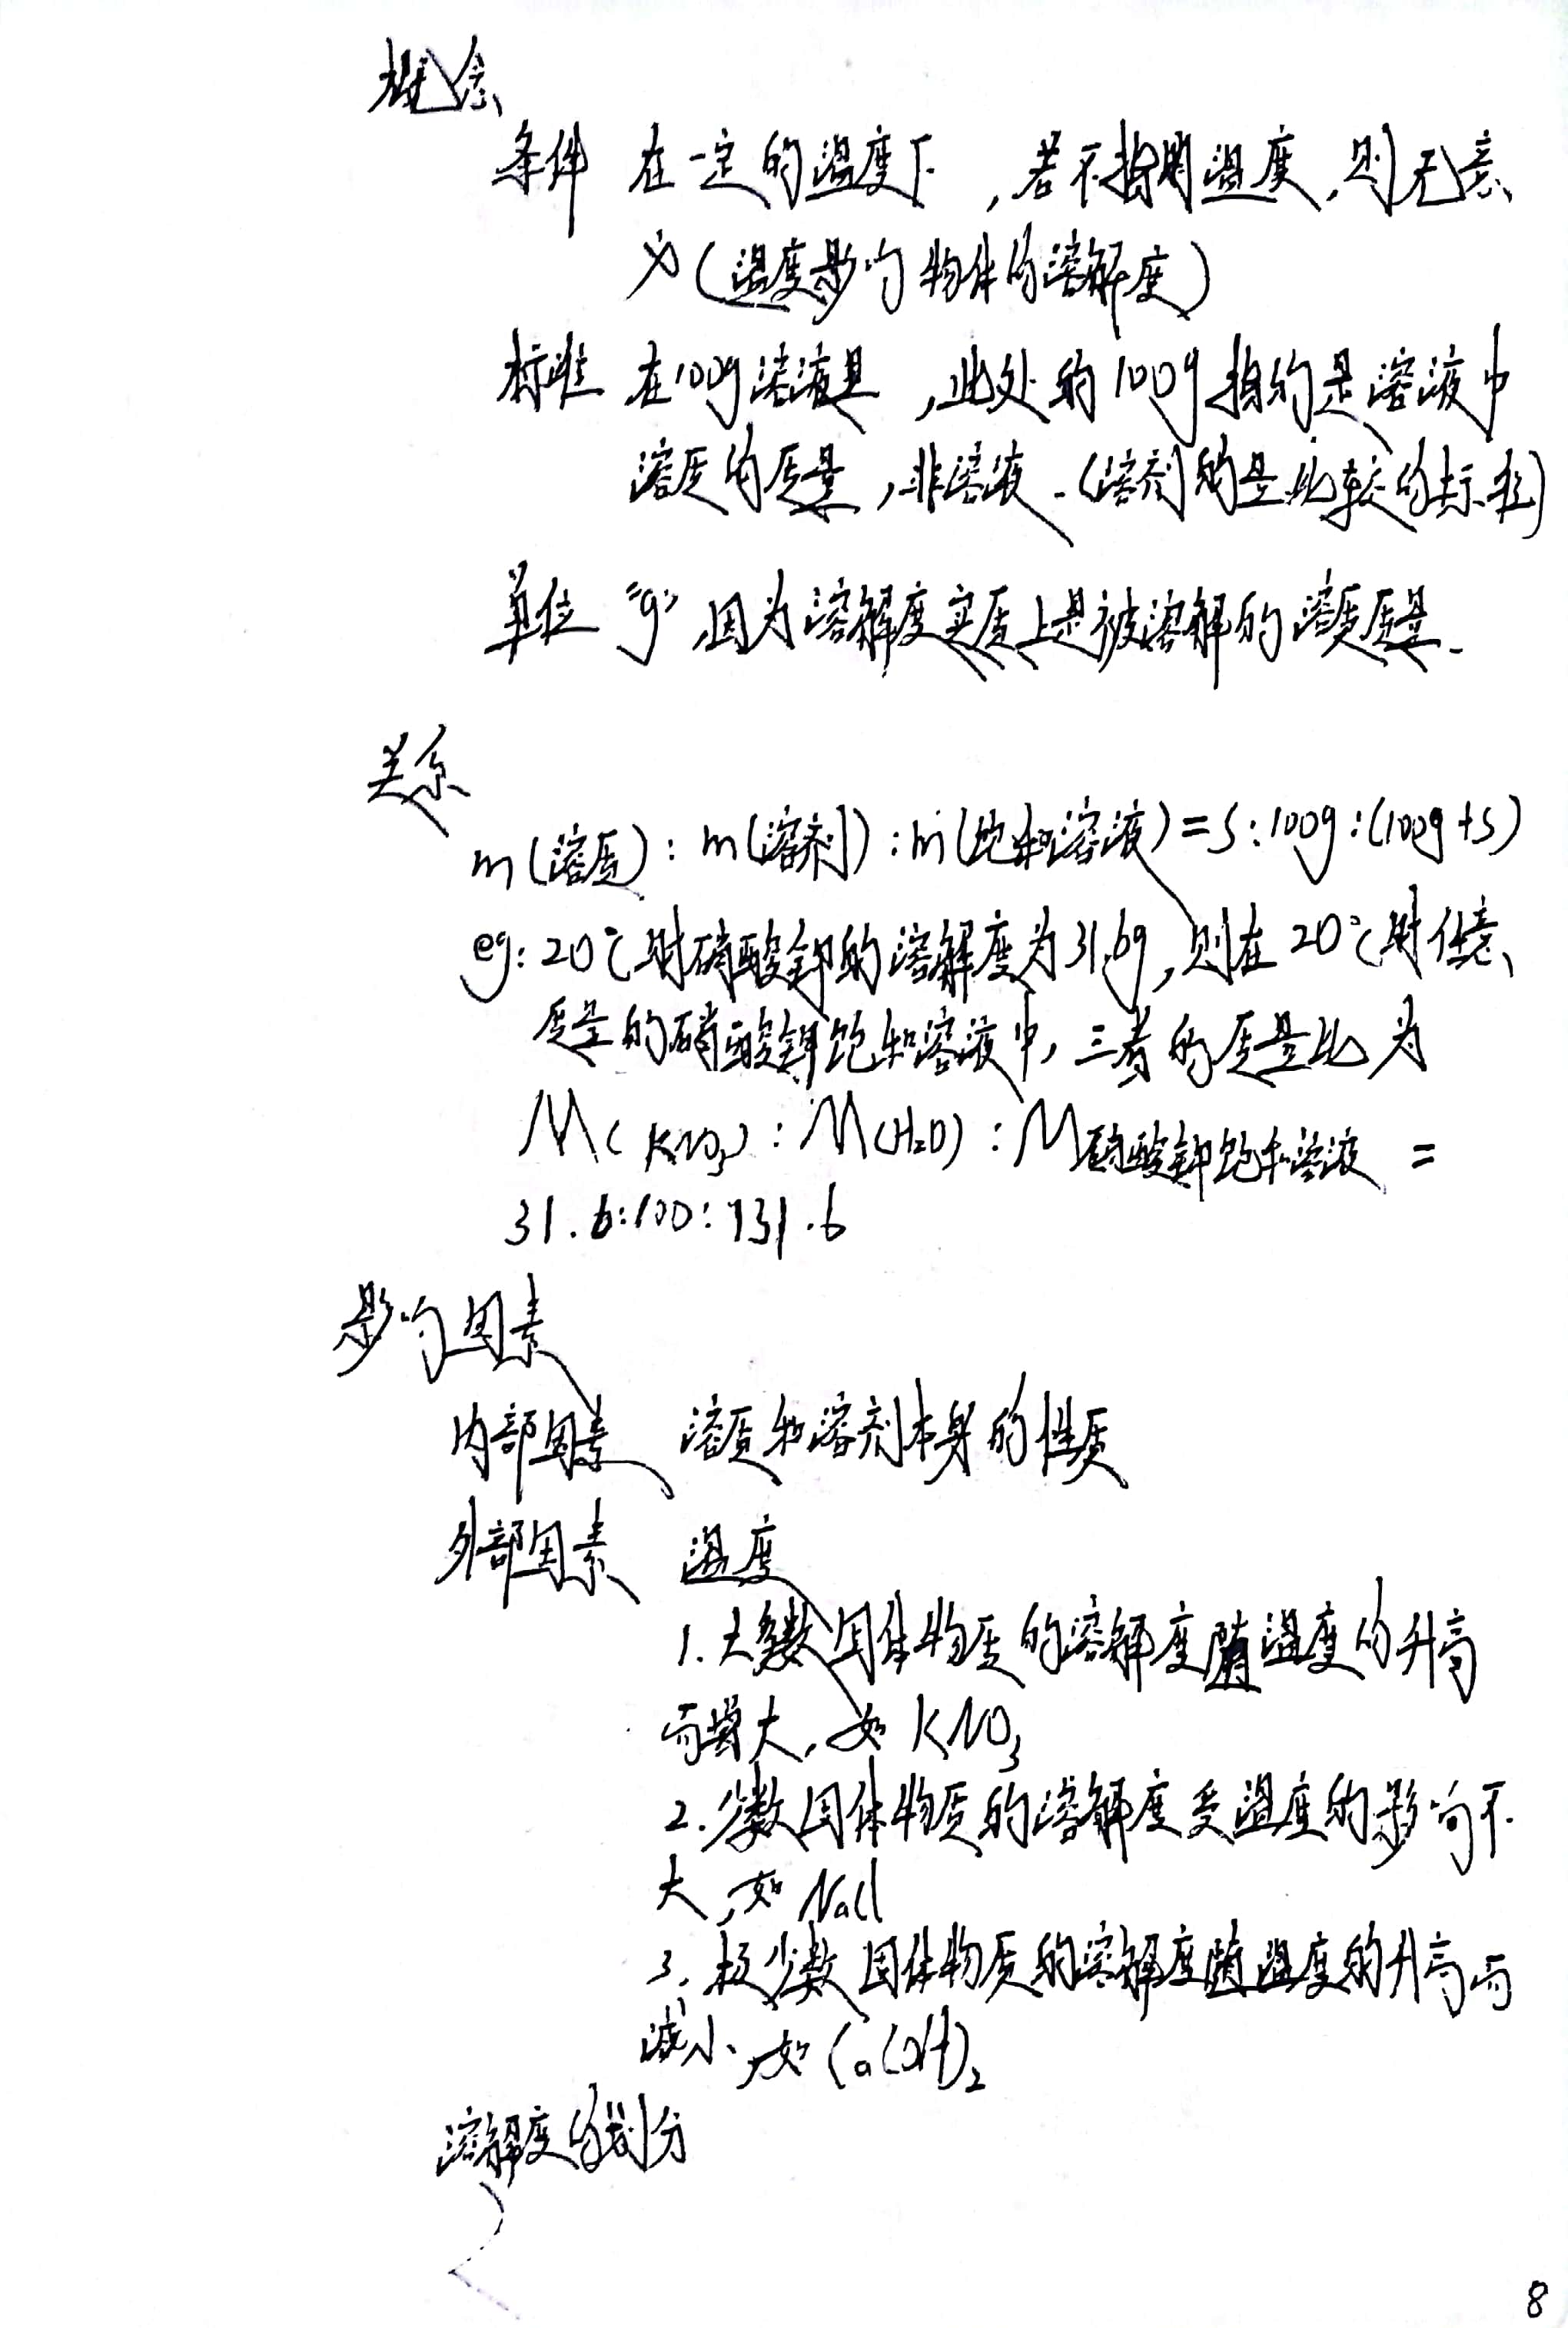 概念
条件 在一定的温度下,若不指明温度,则无意
义(温度影响物体的溶解度)
标准 在100g溶液里,此处的100g指的是溶液中
溶质的质量,非溶液.(溶剂的是比较的标准)
单位 "g",因为溶解度实质上是被溶解的溶质质量.
关系
m(溶质):m(溶剂):m(饱和溶液)=S:100g:(100g+S)
eg:20℃时硝酸钾的溶解度为31.6g,则在20℃时任意
质量的硝酸钾饱和溶液中,三者的质量比为
M(KNO₃):M(H₂O):M硝酸钾饱和溶液 =
31.6:100:131.6
影响因素
内部因素 溶质和溶剂本身的性质
外部因素 温度
1.大多数固体物质的溶解度随温度的升高
而增大,如KNO₃
2.少数固体物质的溶解度受温度的影响不
大,如NaCl
3.极少数固体物质的溶解度随温度的升高而
减小,如Ca(OH)₂
溶解度的划分
8